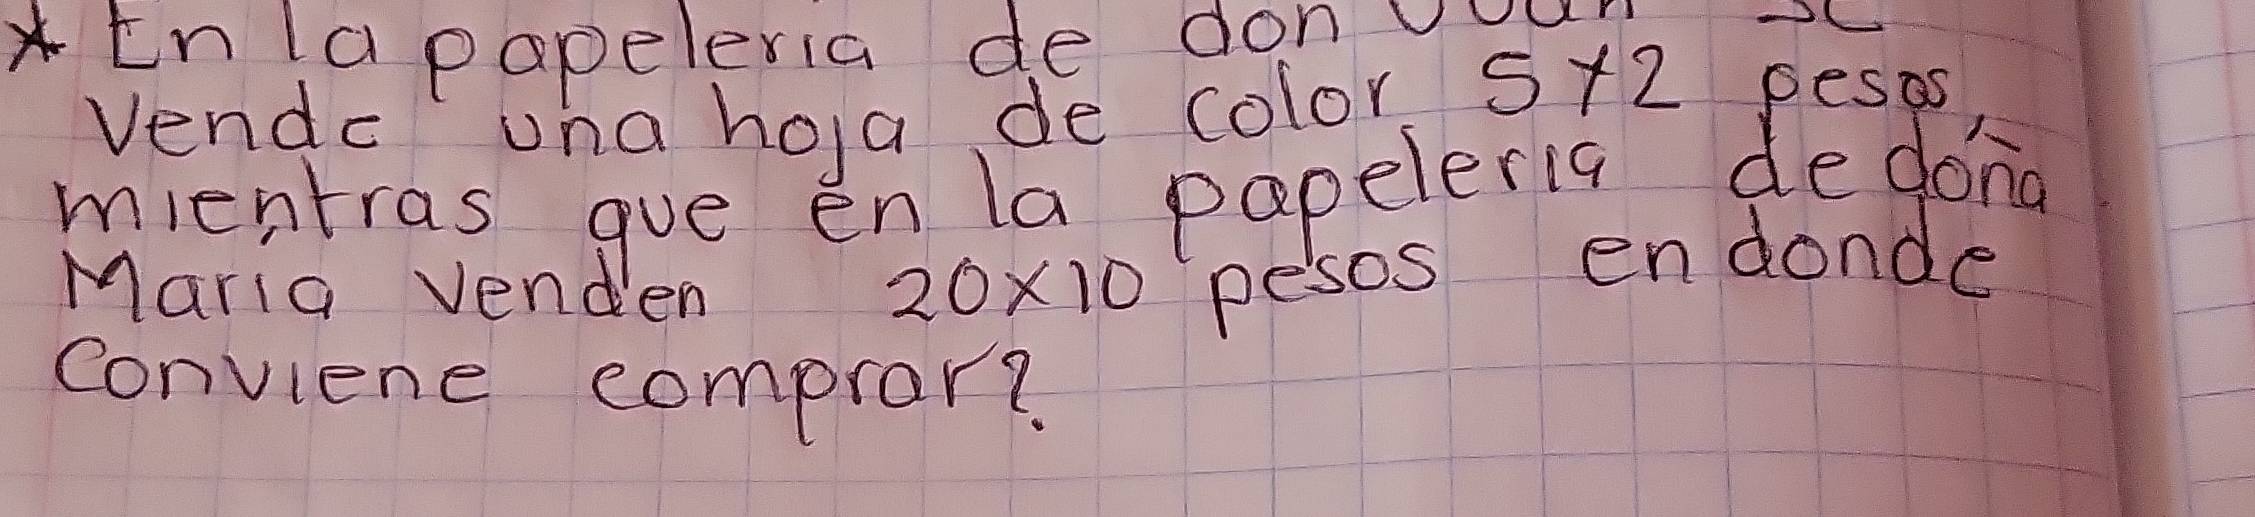 * En la papeleria de don Juan se
vende una hoja de color 5x2 pesos,
mientras que en la papeleria de doña
Maria venden 20x10 pesos en donde
conviene comprar?